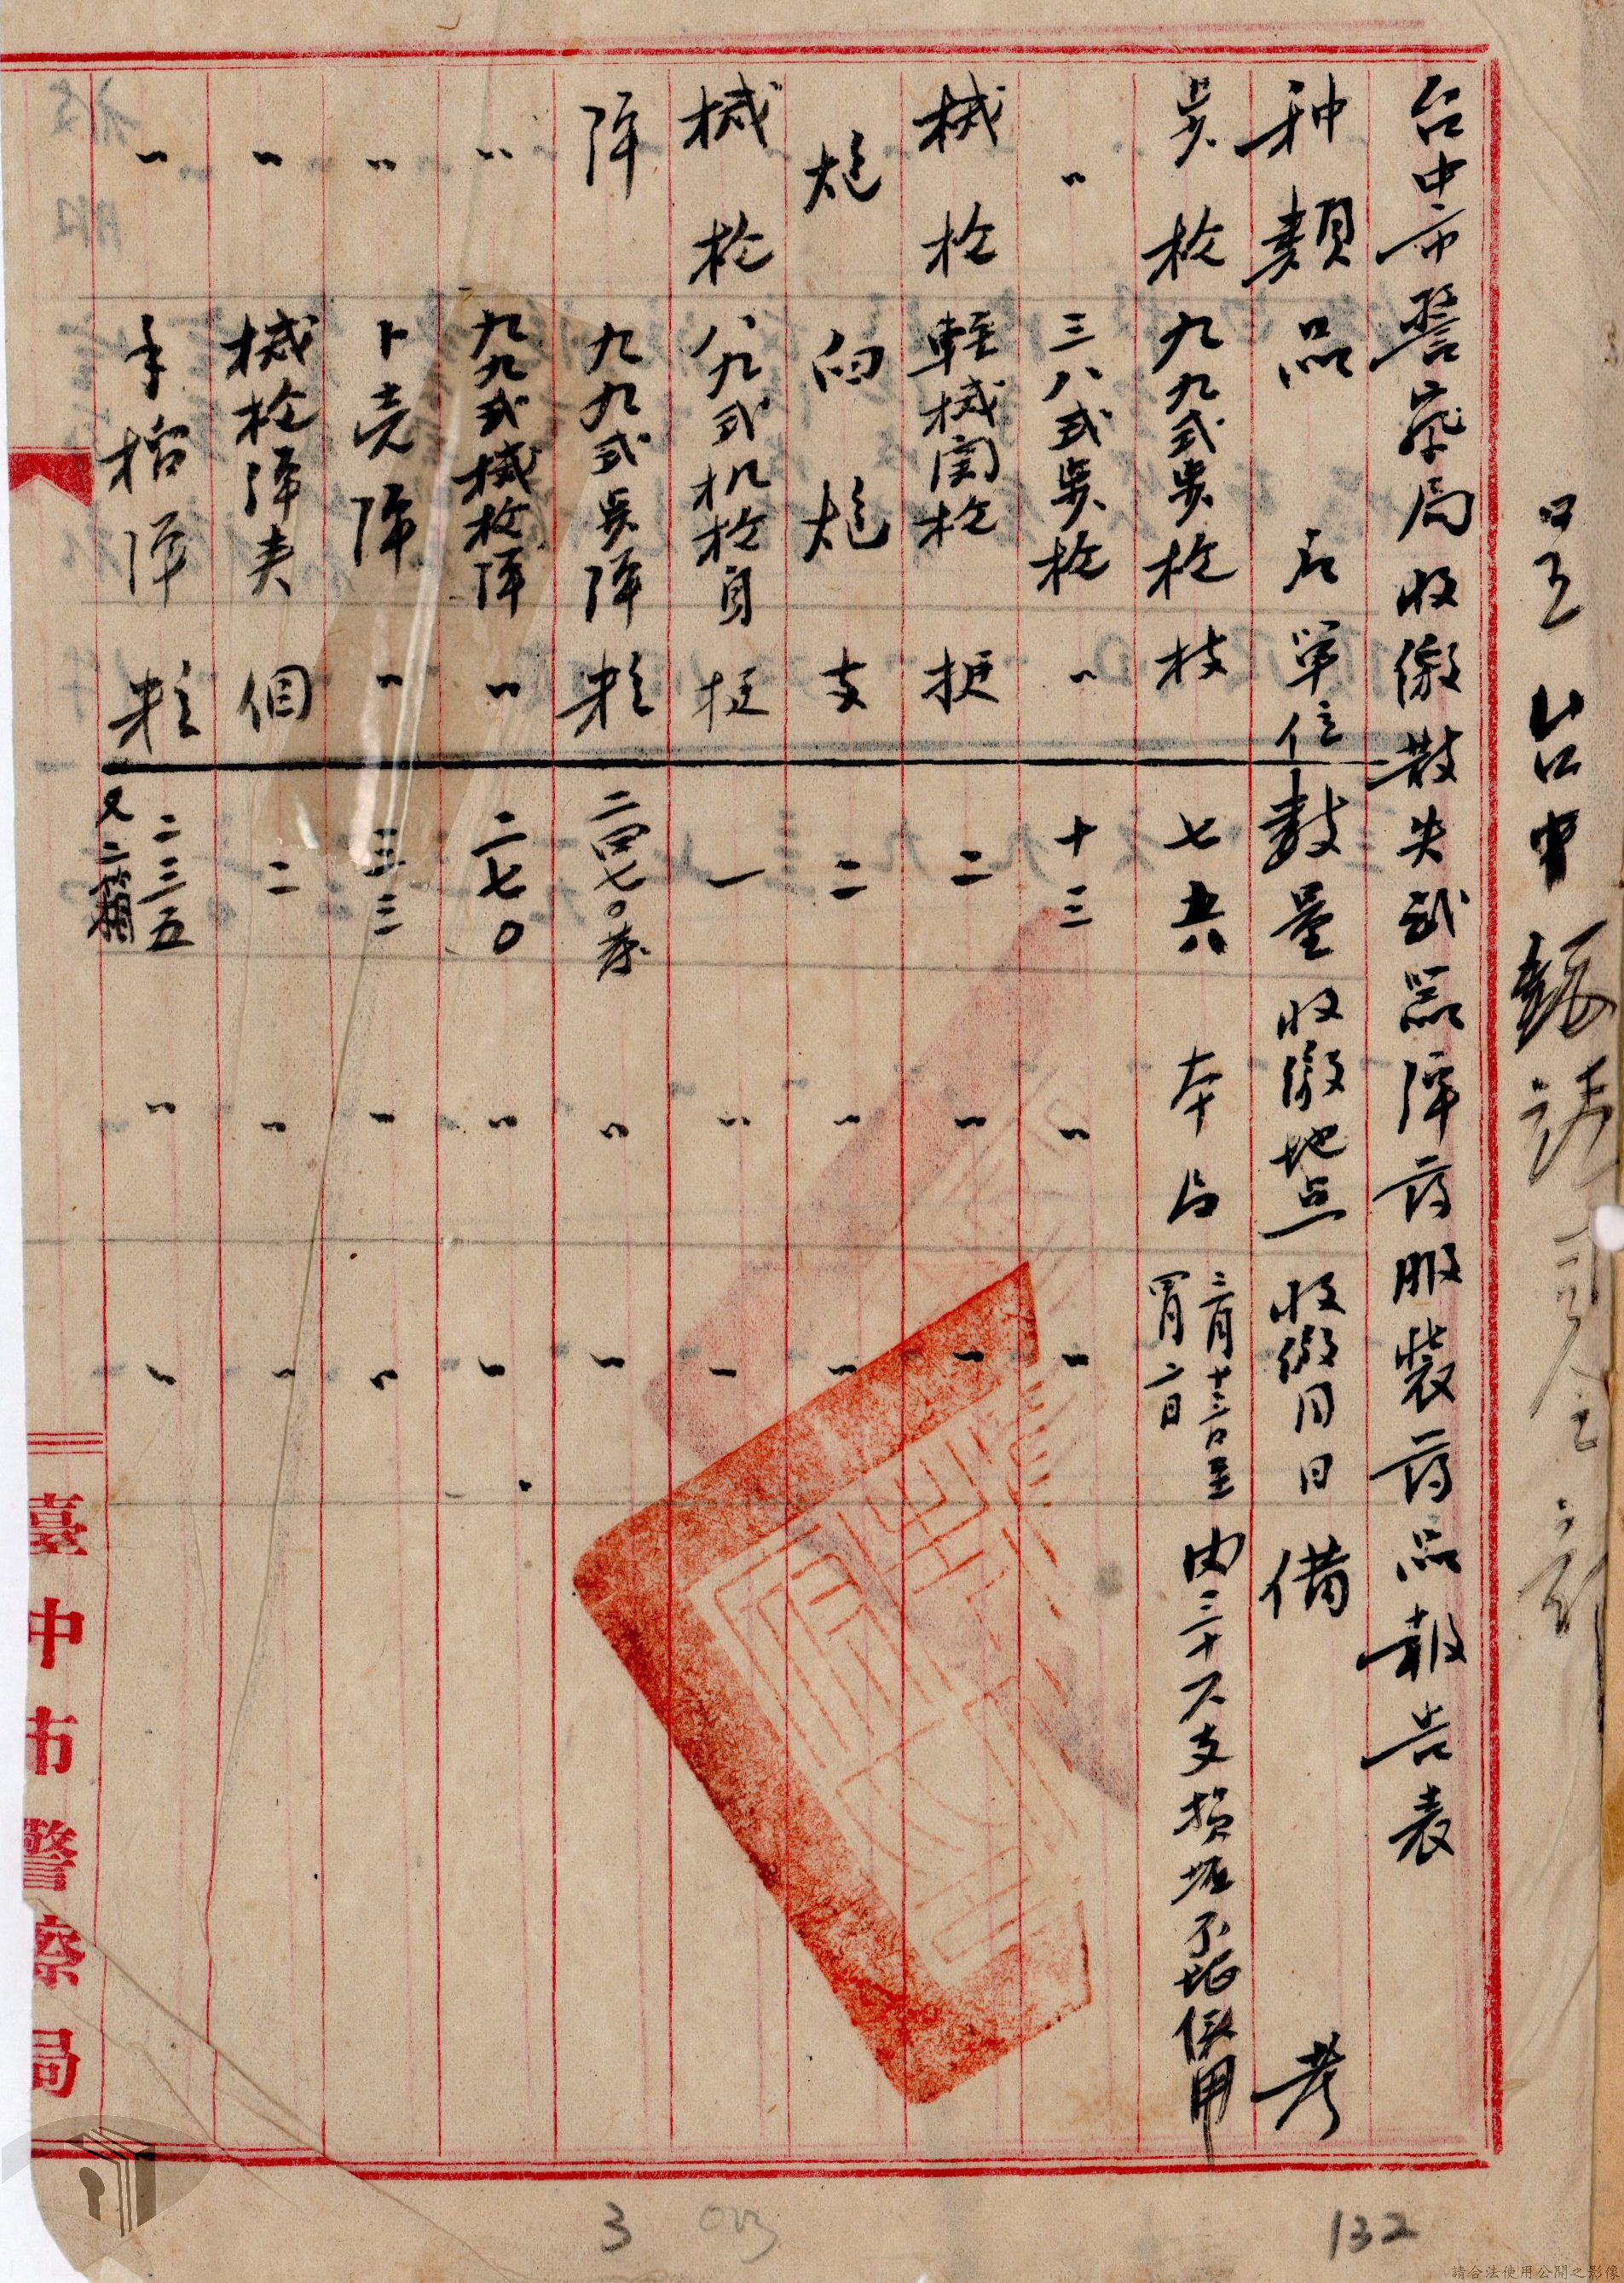 呈 台中
台中市警察局收繳散失武器弹药服装药品報告表
种類 品名 單位 數量 收繳地点 收繳月日 備考
步枪 九九式步枪 枝 七六 本局 三月十三日至四月六日 内三十六支損坏不堪使用
〃 三八式步枪 〃 十三 〃 〃
械枪 軽械関枪 挺 二 〃 〃
炮 向炮 支 二 〃 〃
械枪 八九式机枪身 挺 一 〃 〃
弹 九九式步弹 粒 二四七〇 〃 〃
〃 九九式械枪弹 〃 二七〇 〃 〃
〃 卜壳弹 〃 三三 〃 〃
〃 械枪弹夹 個 二 〃 〃
〃 手榴弹 粒 二三五又二箱 〃 〃
臺中市警察局
3
132
請合法使用公開之影像